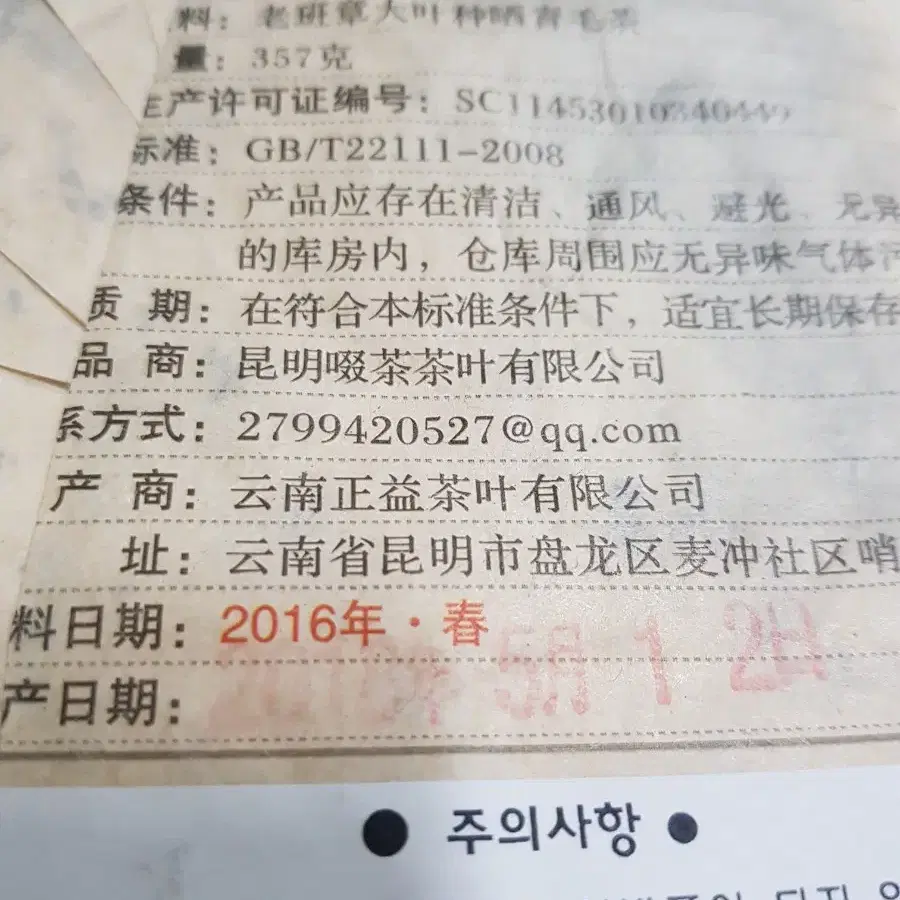 料：老班章大叶种晒青毛茶
量：357克
产许可证编号：
标准：GB/T22111-2008
条件：产品应存在清洁、通风、避光、无异
的库房内，仓库周围应无异味气体污
质 期：在符合本标准条件下，适宜长期保存
品 商：昆明啜茶茶叶有限公司
系方式：2799420527@qq.com
产 商：云南正益茶叶有限公司
址：云南省昆明市盘龙区麦冲社区哨
料日期：2016年·春
产日期：
● 주의사항 ●